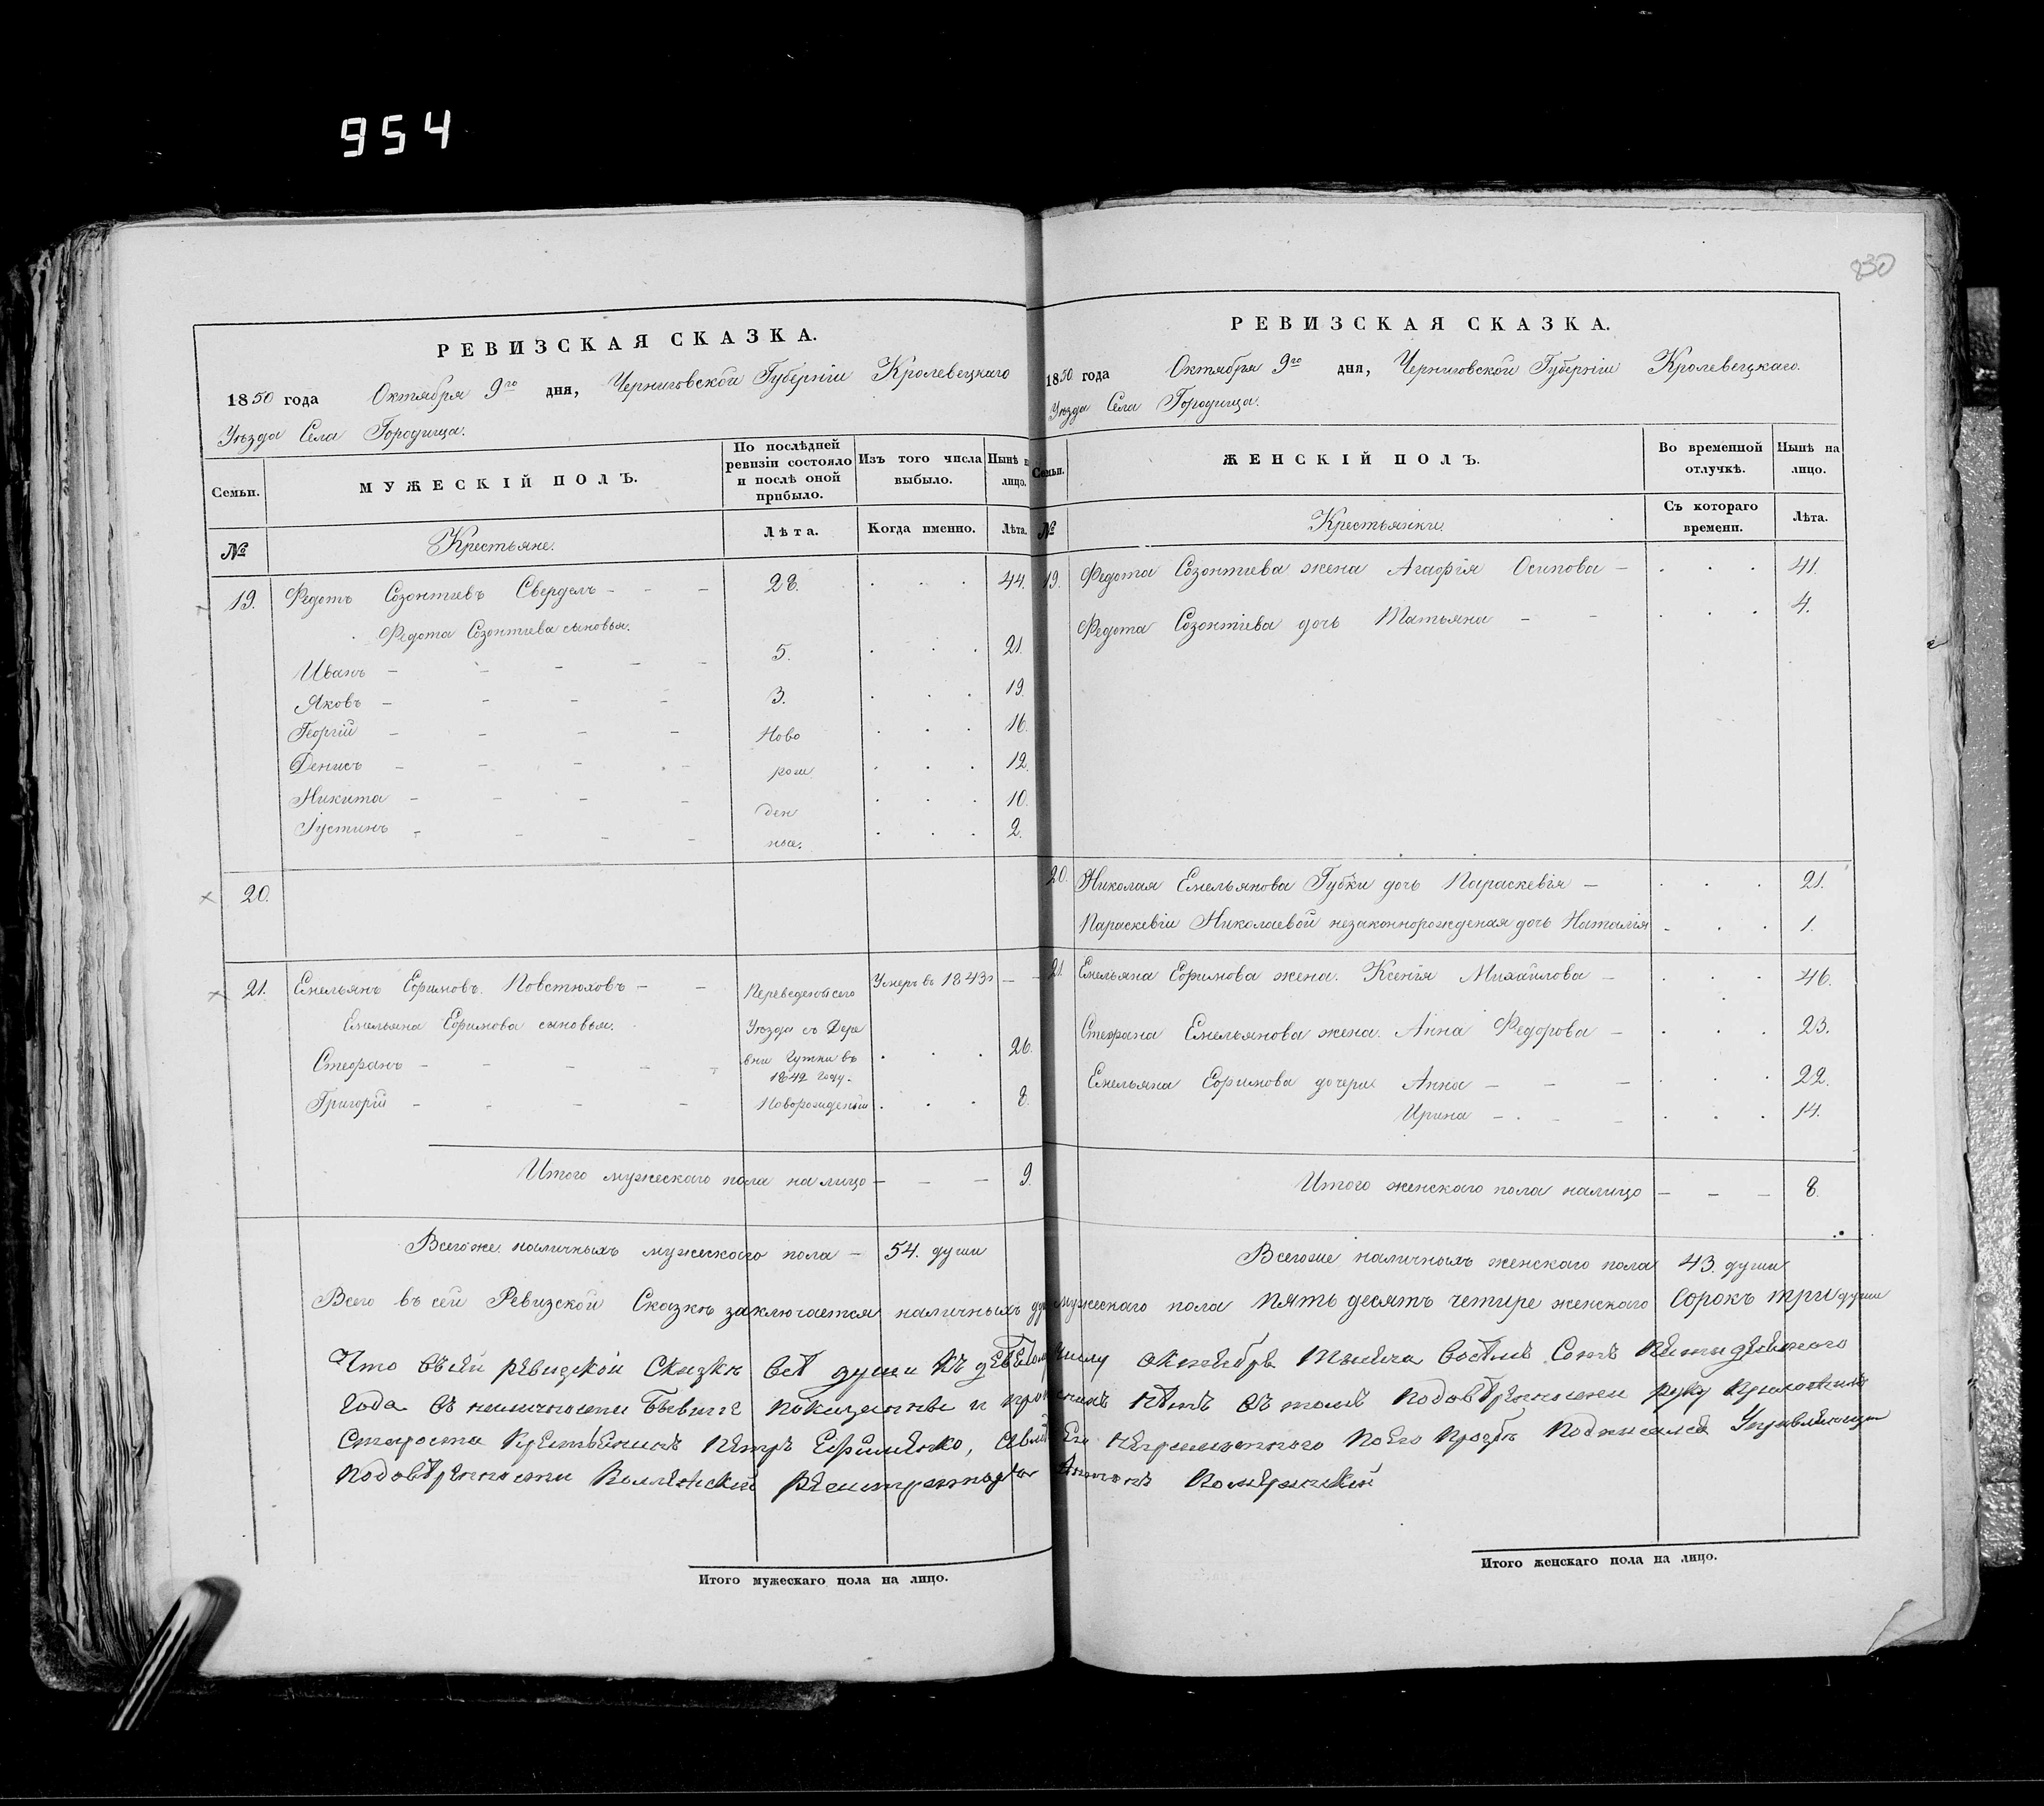 954
830
РЕВИЗСКАЯ СКАЗКА.
1850 года Октября 9го дня, Черниговской Губерніи Кролевецкаго
Уѣзда Села Городища.
Семьи.
МУЖЕСКІЙ ПОЛЪ.
По послѣдней ревизіи состояло и послѣ оной прибыло.
Изъ того числа выбыло.
Нынѣ на лицо.
№
Крестьяне.
Лѣта.
Когда именно.
Лѣта.
19. Федотъ Созонтиевъ Сверделъ - - - 28. . . . 44.
Федота Созонтиева сыновья.
Иванъ - - - - - 5. . . . 21.
Яковъ - - - - 3. . . . 19.
Георгій - - - - Ново . . . 16.
Денисъ - - - - рож . . . 12.
Никита - - - - ден . . . 10.
Іустинъ - - - - ные. . . . 2.
20.
21. Емельянъ Ефимовъ Повстюховъ - - Переведеной сего Умеръ въ 1843г - -
Емельяна Ефимова сыновья. Уѣзда съ Дере
Стефанъ - - - - - вни Гутки въ . . . 26.
1842 году.
Григорій - - - - Новорожденый . . . 8.
Итого мужескаго пола на лицо - - - 9.
Всегоже наличныхъ мужескаго пола - 54. души
РЕВИЗСКАЯ СКАЗКА.
1850 года Октября 9го дня, Черниговской Губерніи Кролевецкаго.
Уѣзда Села Городища.
Семьи.
ЖЕНСКІЙ ПОЛЪ.
Во временной отлучкѣ.
Нынѣ на лицо.
№
Крестьянки.
Съ котораго времени.
Лѣта.
19. Федота Созонтиева жена Агафія Осипова - . . . 41.
Федота Созонтіева дочь Татьяна - - . . . 4.
20. Николая Емельянова Губки дочь Параскевія - . . . 21.
Параскевіи Николаевой незаконнорожденая дочь Наталія - . . 1.
21. Емельяна Ефимова жена. Ксенія Михайлова - . . . 46.
Стефана Емельянова жена. Анна Федорова - . . . 23.
Емельяна Ефимова дочери Анна - - - . . . 22.
Ирина - . - - . . . 14.
Итого женскаго пола налицо - - - 8.
Всегоже наличныхъ женскаго пола 43. души
Всего въ сей Ревизской Сказкѣ заключается наличныхъ мужескаго пола пять десятъ четире женскаго Сорокъ три души
Что въсей ревизкой Сказкѣ всѣ души къ числу октября Тысяча Восемь Сотъ
Года въ наличности Бывшіе показанные и нѣтъ въ томъ подовѣренности руку приложилъ
Староста Крестьянинъ Петръ Ефименко, неграмотного поего прозбѣ подписался Управляющи
подовѣренности Коллежский Регистраторъ Антонъ
Итого мужескаго пола на лицо.
Итого женскаго пола на лицо.